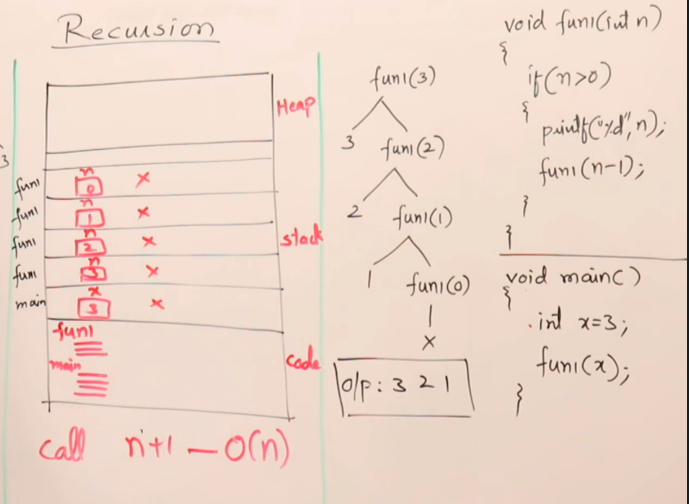 Recursion
Heap
3
fun1 n 0 x
fun1 n 1 x
fun1 n 2 x
stack
fun1 n 3 x
main x 3 x
fun1
main
code
call n+1 — O(n)
fun1(3)
3 fun1(2)
2 fun1(1)
1 fun1(0)
x
o/p: 3 2 1
void fun1(int n)
{
if(n>0)
{
printf("%d", n);
fun1(n-1);
}
}
void main()
{
int x=3;
fun1(x);
}